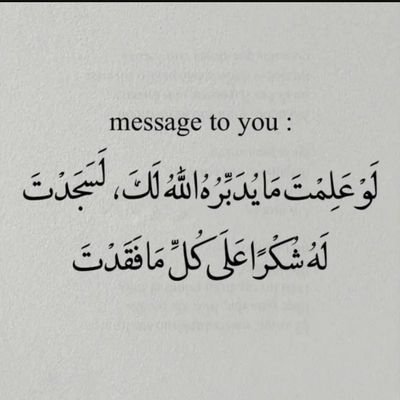 message to you :
لَوْ عَلِمْتَ مَا يُدَبِّرُهُ اللّٰهُ لَكَ، لَسَجَدْتَ
لَهُ شُكْرًا عَلَى كُلِّ مَا فَقَدْتَ